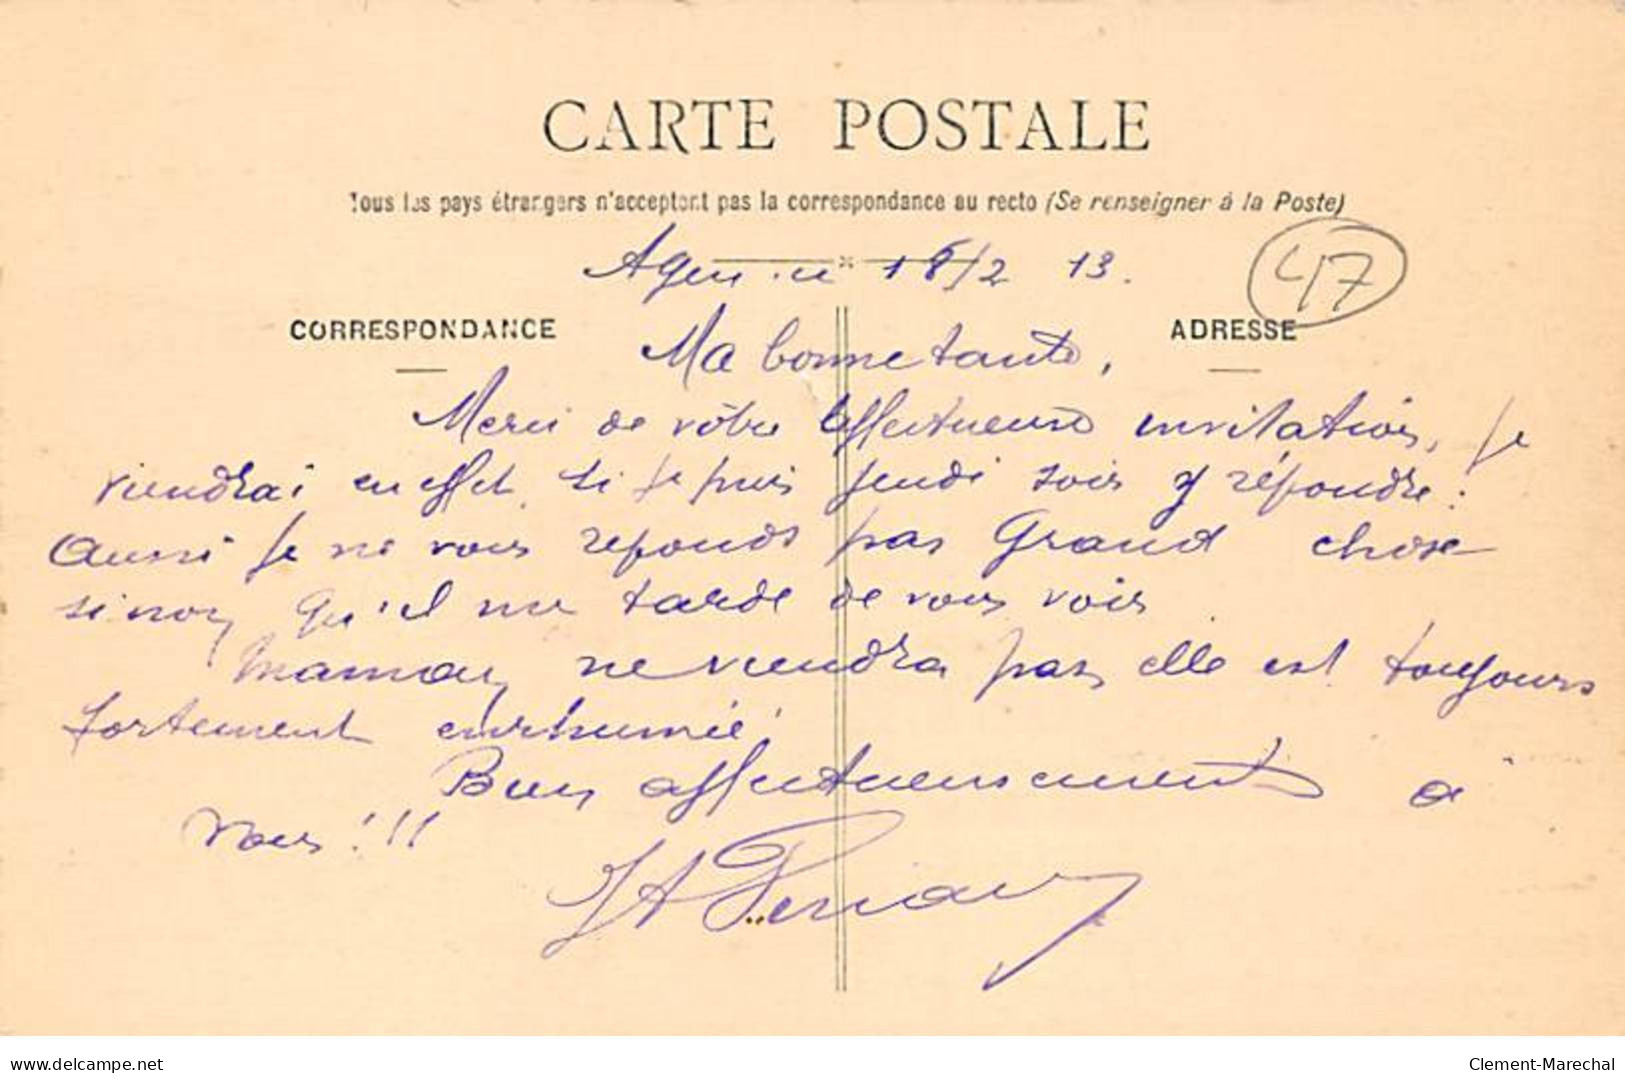 CARTE POSTALE
Tous les pays étrangers n'acceptent pas la correspondance au recto (Se renseigner à la Poste)
Agen le 18/2 13.
47
CORRESPONDANCE
ADRESSE
Ma bonne tante,
Merci de vôtre affectueuse invitation, je
viendrai en effet si je puis jeudi soir y répondre.
Aussi je ne vous reponds pas Grand chose
sinon qu'il me tarde de vous voir
Maman ne viendra pas elle est toujours
fortement enrhumée!
Bien affectueusement à
vous!!!
delcampe.net
Clement-Marechal